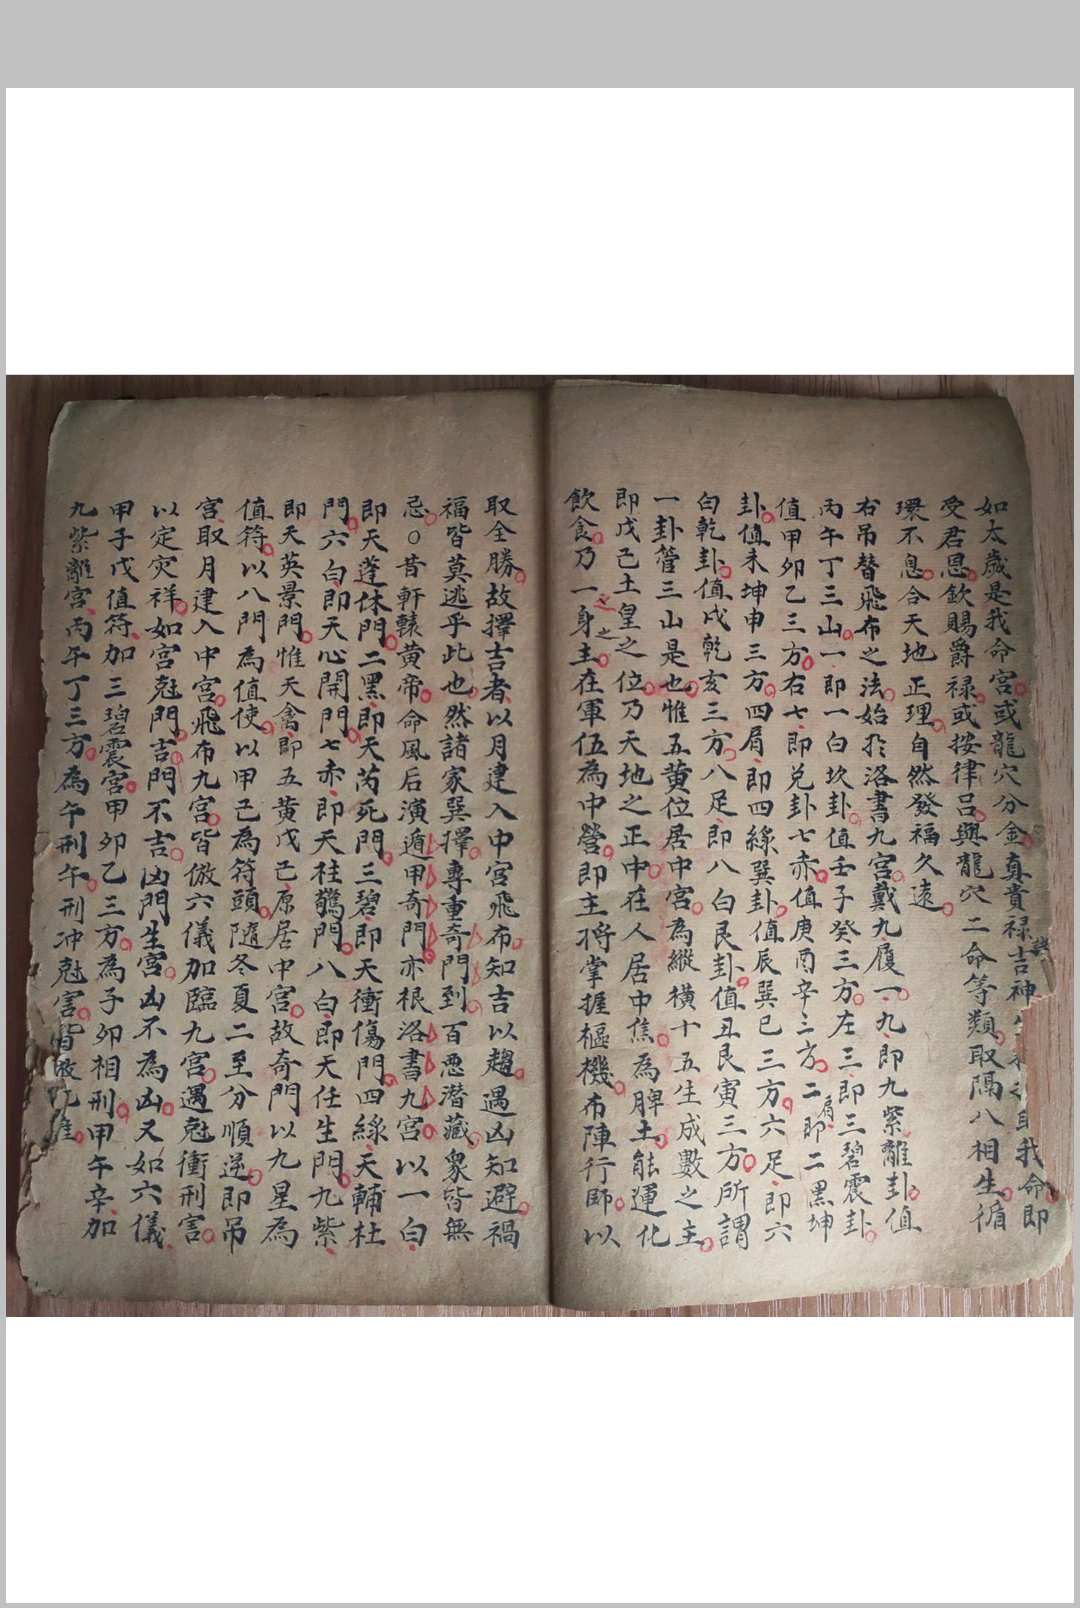 如太歲是我命宮或龍穴分金真貴禄吉神自我命即
受君恩欽賜爵禄或按律吕與龍穴二命等類取隔八相生循
環不息合天地正理自然發福久遠
右吊替飛布之法始於洛書九宮戴九履一九即九紫離卦值
丙午丁三山一即一白坎卦值壬子癸三方左三即三碧震卦
值甲卯乙三方右七即兑卦七赤值庚酉辛三方二肩即二黑坤
卦值未坤申三方四肩即四緑巽卦值辰巽巳三方六足即六
白乾卦值戌乾亥三方八足即八白艮卦值丑艮寅三方所謂
一卦管三山是也惟五黄位居中宮為縱横十五生成數之主
即戊己土皇之位乃天地之正中在人居中焦為脾土能運化
飲食乃一身之主在軍伍為中營即主将掌握樞機布陣行師以
取全勝故擇吉者以月建入中宮飛布知吉以趨遇凶知避禍
福皆莫逃乎此也然諸家巽擇尊重奇門到百惡潜藏衆皆無
忌○昔軒轅黄帝命風后演遁甲奇門亦根洛書九宮以一白
即天蓬休門二黑即天芮死門三碧即天衝傷門四緑天輔杜
門六白即天心開門七赤即天柱驚門八白即天任生門九紫
即天英景門惟天禽即五黄戊己原居中宮故奇門以九星為
值符以八門為值使以甲己為符頭隨冬夏二至分順逆即吊
宮取月建入中宮飛布九宮皆倣六儀加臨九宮遇尅衝刑害
以定灾祥如宮尅門吉門不吉凶門生宮凶不為凶又如六儀
甲子戊值符加三碧震宮甲卯乙三方為子卯相刑甲午辛加
九紫離宮丙午丁三方為午刑午刑冲尅害皆倣此推